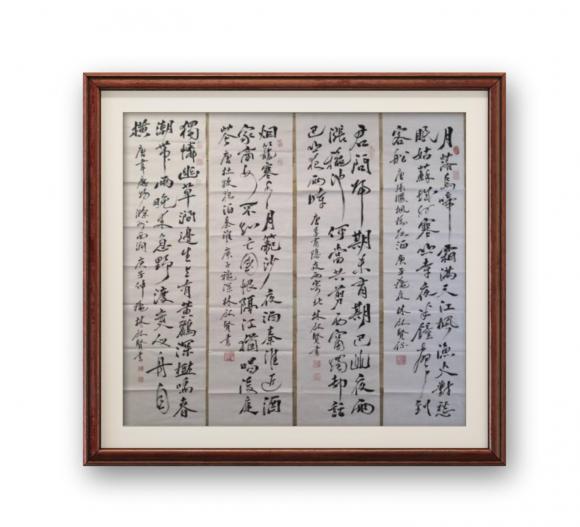 月落烏啼霜滿天江楓漁火對愁
眠姑蘇城外寒山寺夜半鐘聲到
客船 唐張繼楓橋夜泊 庚子
君問歸期未有期巴山夜雨
漲秋池何當共剪西窗燭却話
巴山夜雨時 唐李商隱夜雨寄北 林賢書
烟籠寒水月籠沙夜泊秦淮近酒
家商女不知亡國恨隔江猶唱後庭
花 唐杜牧泊秦淮 庚子龝深林賢書
獨憐幽草澗邊生上有黃鸝深樹鳴春
潮帶雨晚來急野渡無人舟自
橫 唐韋應物滁州西澗 庚子仲龝林賢書